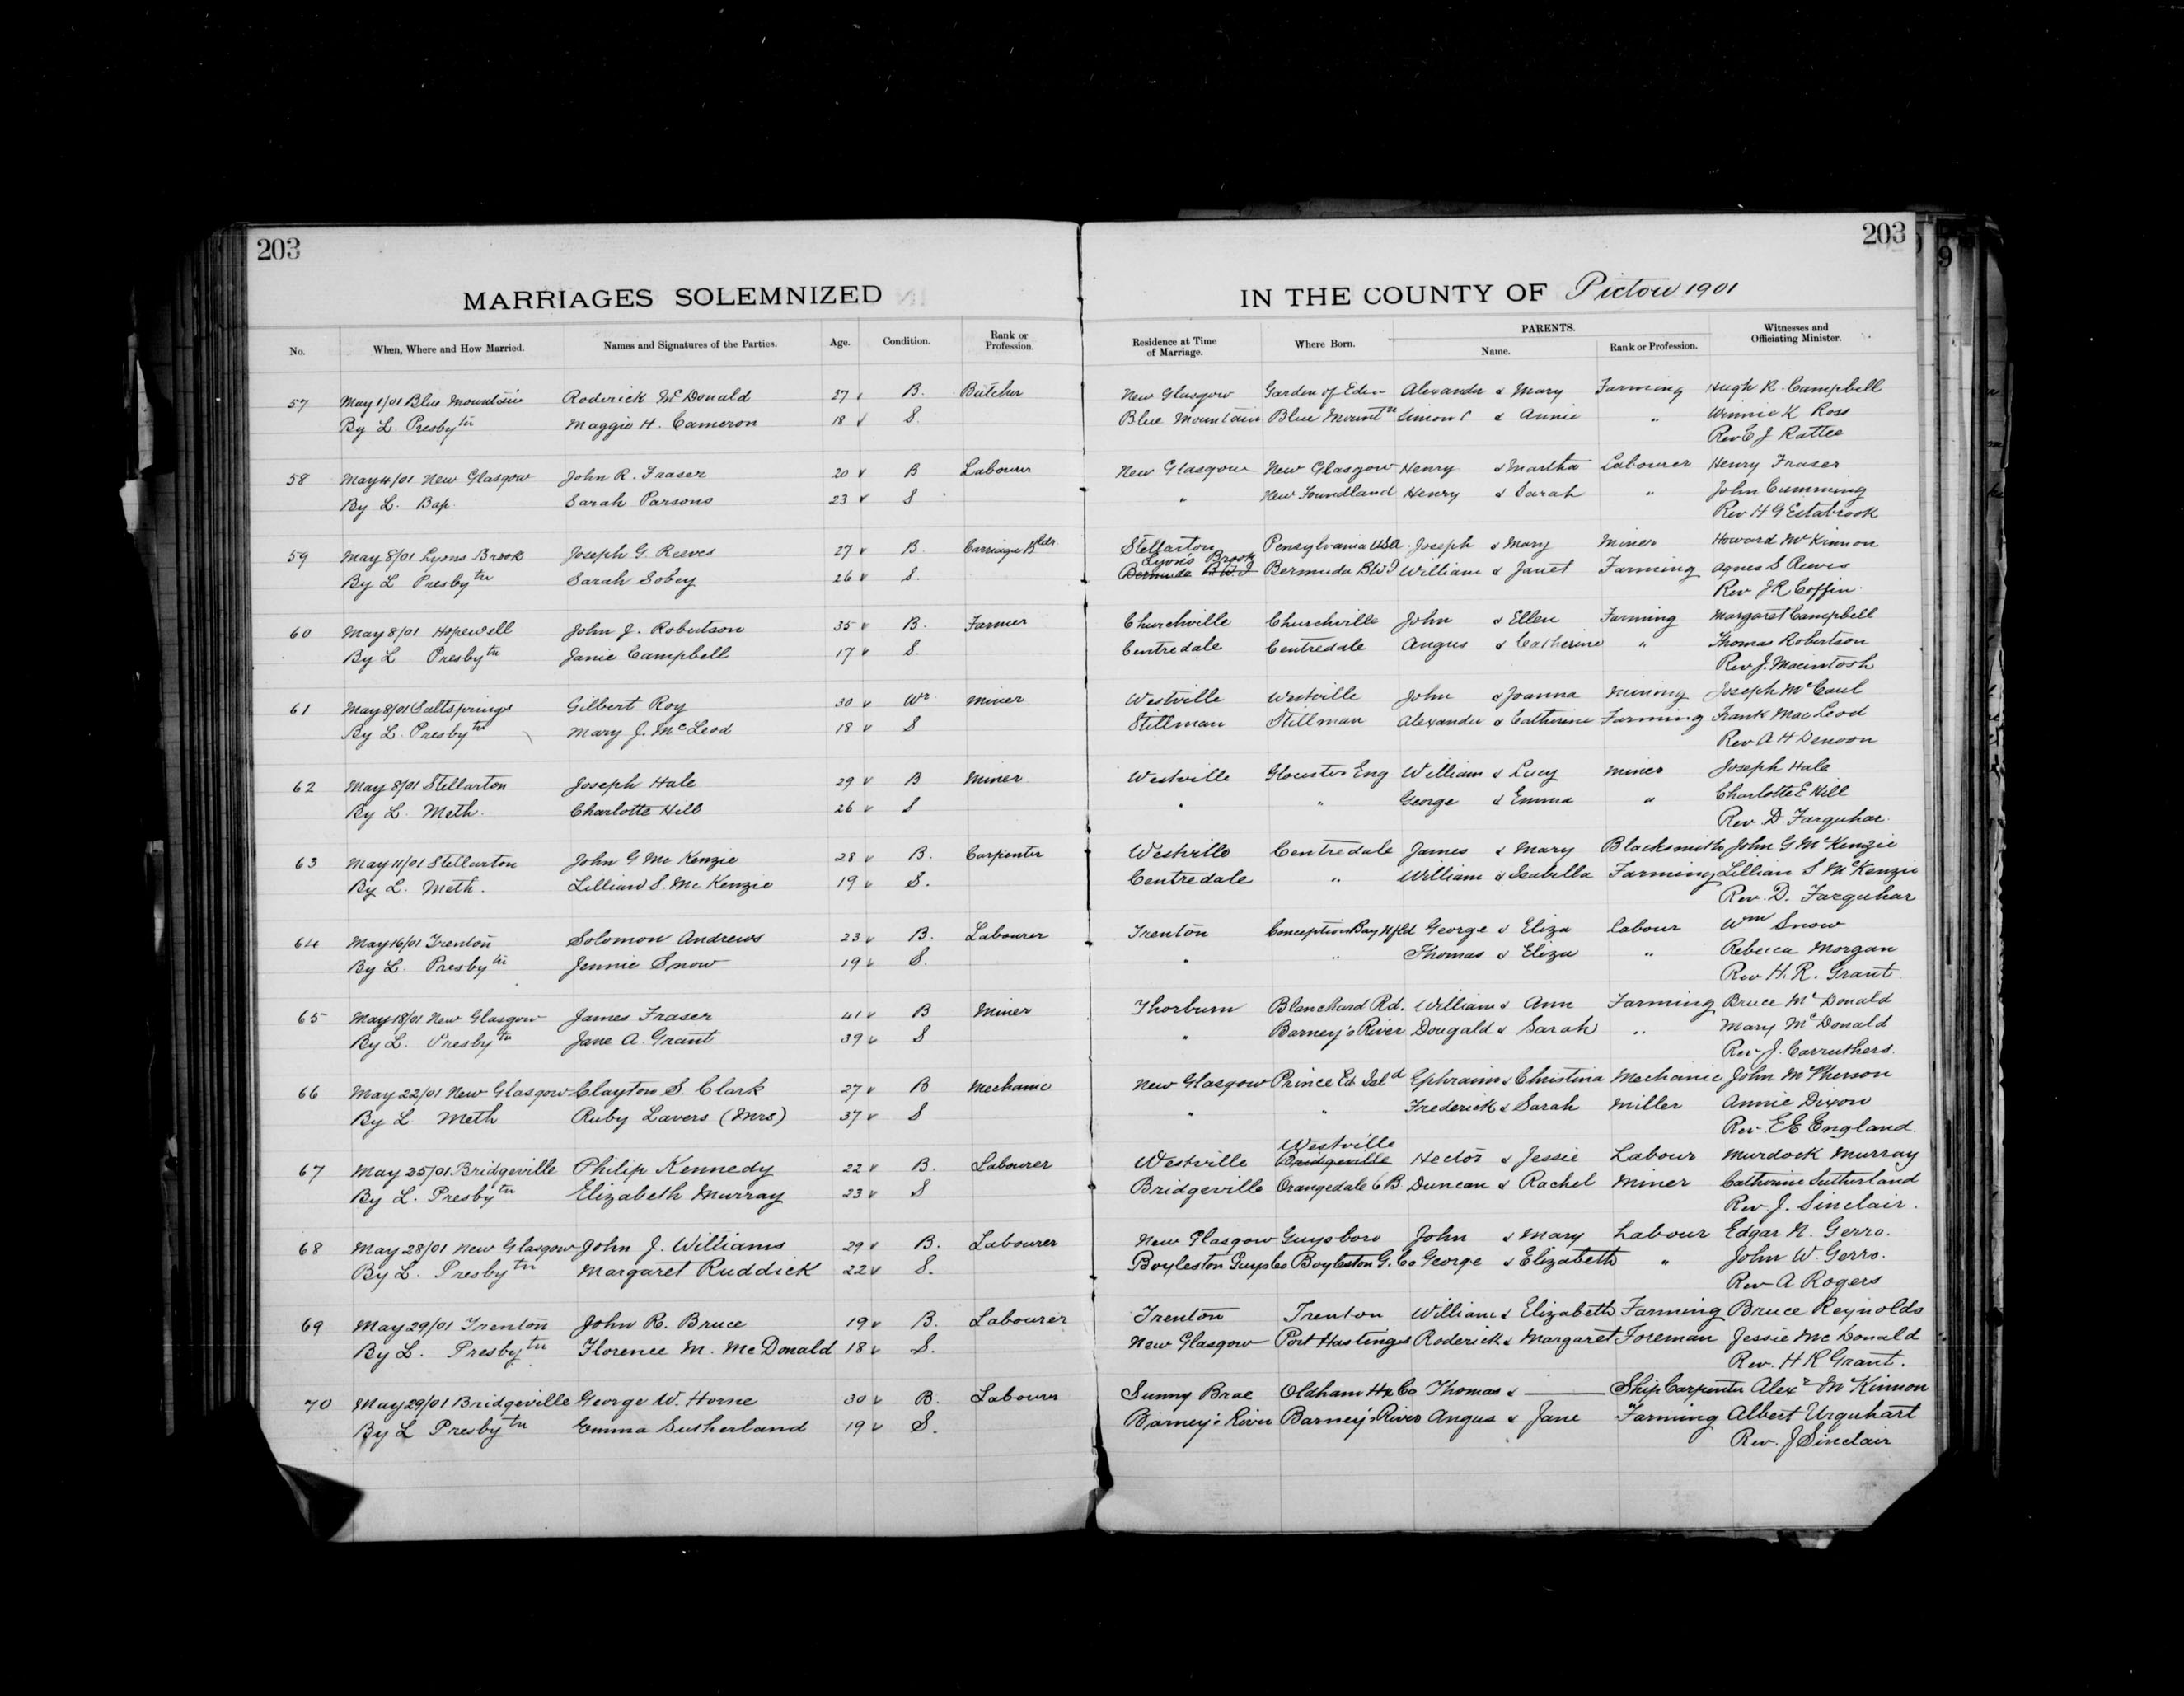 203
203
MARRIAGES SOLEMNIZED
IN THE COUNTY OF Pictou 1901
No. When, Where and How Married. Names and Signatures of the Parties. Age. Condition. Rank or Profession. Residence at Time of Marriage. Where Born. PARENTS. Name. Rank or Profession. Witnesses and Officiating Minister.
57 May 1/01 Blue Mountain Roderick McDonald 27 B. Butcher New Glasgow Garden of Eden Alexander & Mary Farming Hugh R. Campbell
By L. Presbytn Maggie H. Cameron 18 S. Blue Mountain Blue Mountn Simon C & Annie " Winnie K Ross
Rev E J Rattee
58 May 4/01 New Glasgow John R. Fraser 20 B Labourer New Glasgow New Glasgow Henry & Martha Labourer Henry Fraser
By L. Bap. Sarah Parsons 23 S " New Foundland Henry & Sarah " John Cumming
Rev H G Estabrook
59 May 8/01 Lyons Brook Joseph G. Reeves 27 B. Carriage Bldr Stellarton Pensylvania USA Joseph & Mary Miner Howard McKinnon
By L Presbytn Sarah Sobey 26 S. Lyons Brook Bermuda B.W.I Bermuda BWI William & Janet Farming Agnes S Reeves
Rev J R Coffin.
60 May 8/01 Hopewell John J. Robertson 35 B. Farmer Churchville Churchville John & Ellen Farming Margaret Campbell
By L Presbytn Janie Campbell 17 S. Centredale Centredale Angus & Catherine " Thomas Robertson
Rev J. Macintosh
61 May 8/01 Saltsprings Gilbert Roy 30 Wr. Miner Westville Westville John & Joanna Mining Joseph McCaul
By L. Presbytn Mary J. McLeod 18 S Stillman Stillman Alexander & Catherine Farming Frank MacLeod
Rev A H Denoon
62 May 8/01 Stellarton Joseph Hale 29 B Miner Westville Gloucster Eng William & Lucy Miner Joseph Hale
By L. Meth. Charlotte Hill 26 S " " George & Emma " Charlotte E Hill
Rev D. Farquhar.
63 May 11/01 Stellarton John G McKenzie 28 B. Carpenter Westville Centredale James & Mary Blacksmith John G McKenzie
By L. Meth. Lillian S. McKenzie 19 S. Centredale " William & Isabella Farming Lillian S McKenzie
Rev. D. Farquhar
64 May 16/01 Trenton Solomon Andrews 23 B. Labourer Trenton Conception Bay Nfld George & Eliza Labour Wm Snow
By L. Presbytn Jennie Snow 19 S. " " Thomas & Eliza " Rebecca Morgan
Rev H. R. Grant.
65 May 18/01 New Glasgow James Fraser 41 B Miner Thorburn Blanchard Rd. William & Ann Farming Bruce McDonald
By L. Presbytn Jane A. Grant 39 S " Barney's River Dougald & Sarah " Mary McDonald
Rev J. Carruthers.
66 May 22/01 New Glasgow Clayton S. Clark 27 B Mechanic New Glasgow Prince Ed Isld Ephraim & Christina Mechanic John McPherson
By L Meth Ruby Lavers (Mrs) 37 S " " Frederick & Sarah Miller Annie Dixon
Rev. E E England.
67 May 25/01 Bridgeville Philip Kennedy 22 B. Labourer Westville Westville Bridgeville Hector & Jessie Labour Murdock Murray
By L. Presbytn Elizabeth Murray 23 S Bridgeville Orangedale CB Duncan & Rachel Miner Catherine Sutherland
Rev. J. Sinclair.
68 May 28/01 New Glasgow John J. Williams 29 B. Labourer New Glasgow Guysboro John & Mary Labour Edgar N. Gerro.
By L. Presbytn Margaret Ruddick 22 S. Boyleston Guys Co Boyleston G. Co George & Elizabeth " John W. Gerro.
Rev A Rogers
69 May 29/01 Trenton John R. Bruce 19 B. Labourer Trenton Trenton William & Elizabeth Farming Bruce Reynolds
By L. Presbytn Florence M. McDonald 18 S. New Glasgow Port Hastings Roderick & Margaret Foreman Jessie McDonald
Rev. H R Grant.
70 May 29/01 Bridgeville George W. Horne 30 B. Labourer Sunny Brae Oldham Hx Co Thomas & — Ship Carpenter Alexr McKinnon
By L Presbytn Emma Sutherland 19 S. Barney's River Barney's River Angus & Jane Farming Albert Urquhart
Rev. J Sinclair